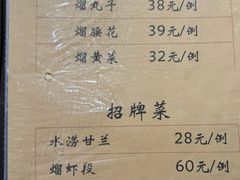 熘丸子 38元/例
熘腰花 39元/例
熘黄菜 32元/例
招牌菜
水涝甘兰 28元/例
熘虾段 60元/例